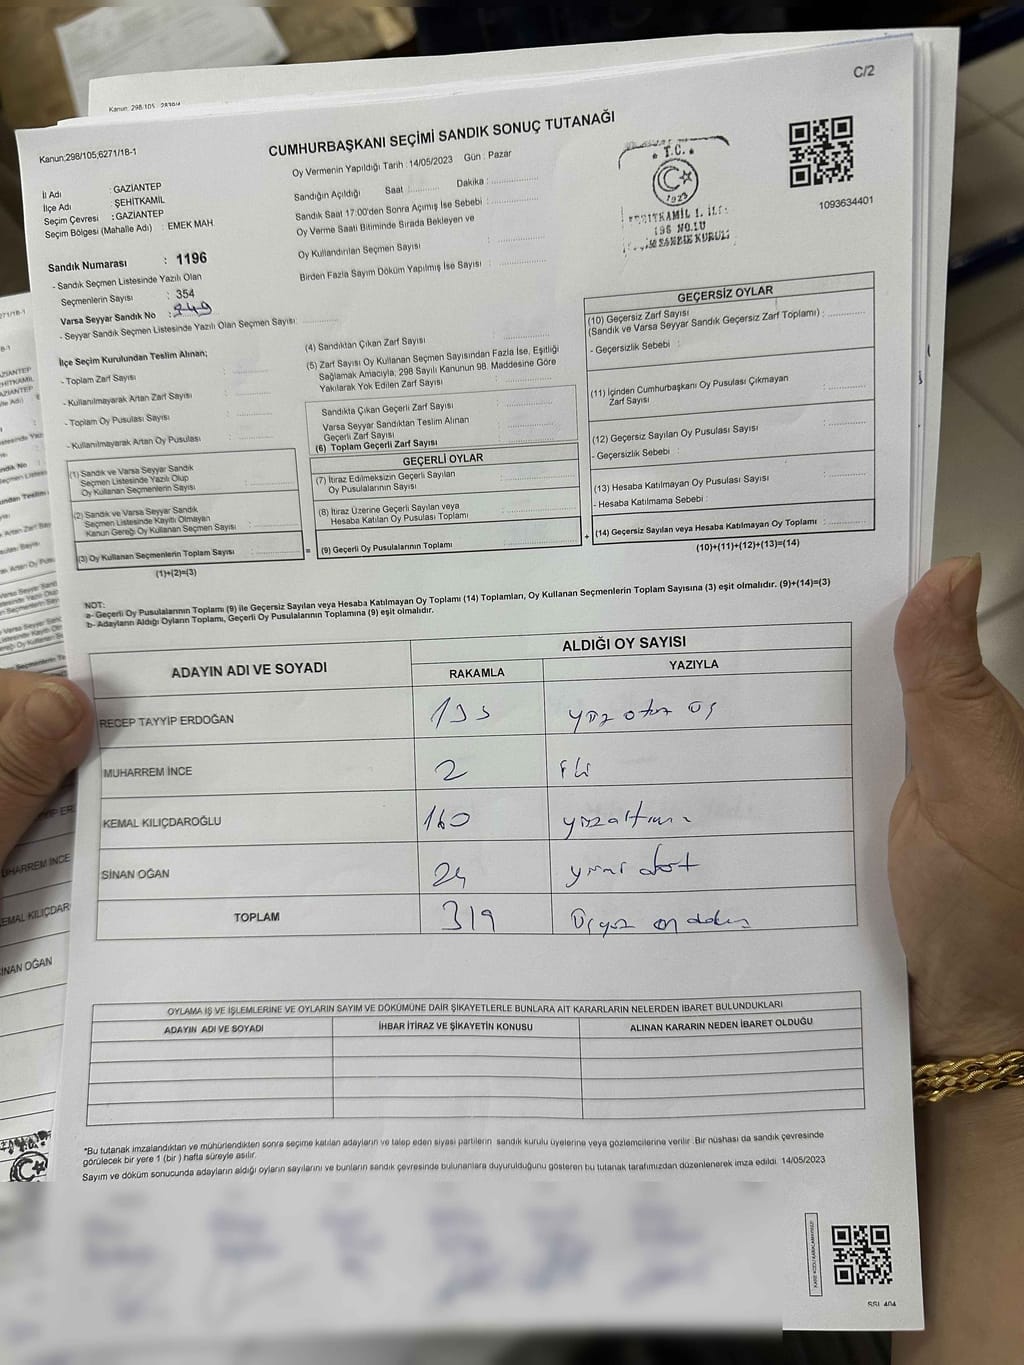 Kanun: 298/105
C/2
Kanun:298/105;6271/18-1
CUMHURBAŞKANI SEÇİMİ SANDIK SONUÇ TUTANAĞI
İl Adı : GAZİANTEP
İlçe Adı : ŞEHİTKAMİL
Seçim Çevresi : GAZİANTEP
Seçim Bölgesi (Mahalle Adı) : EMEK MAH
Oy Vermenin Yapıldığı Tarih : 14/05/2023 Gün : Pazar
Sandığın Açıldığı Saat : Dakika :
Sandık Saat 17:00'den Sonra Açımış İse Sebebi :
Oy Verme Saati Bitiminde Sırada Bekleyen ve
Oy Kullandırılan Seçmen Sayısı :
Birden Fazla Sayım Döküm Yapılmış İse Sayısı :
T.C.
1923
ŞEHİTKAMİL 1. İLÇE
196 NO.LU
SANDIK KURULU
1093634401
Sandık Numarası : 1196
- Sandık Seçmen Listesinde Yazılı Olan
Seçmenlerin Sayısı : 354
349
Varsa Seyyar Sandık No :
- Seyyar Sandık Seçmen Listesinde Yazılı Olan Seçmen Sayısı:
İlçe Seçim Kurulundan Teslim Alınan;
- Toplam Zarf Sayısı :
- Kullanılmayarak Artan Zarf Sayısı :
- Toplam Oy Pusulası Sayısı :
- Kullanılmayarak Artan Oy Pusulası :
(1) Sandık ve Varsa Seyyar Sandık
Seçmen Listesinde Yazılı Olup
Oy Kullanan Seçmenlerin Sayısı :
(2) Sandık ve Varsa Seyyar Sandık
Seçmen Listesinde Kayıtlı Olmayan
Kanun Gereği Oy Kullanan Seçmen Sayısı :
(3) Oy Kullanan Seçmenlerin Toplam Sayısı :
(1)+(2)=(3)
(4) Sandıktan Çıkan Zarf Sayısı :
(5) Zarf Sayısı Oy Kullanan Seçmen Sayısından Fazla İse, Eşitliği
Sağlamak Amacıyla, 298 Sayılı Kanunun 98. Maddesine Göre
Yakılarak Yok Edilen Zarf Sayısı :
Sandıkta Çıkan Geçerli Zarf Sayısı :
Varsa Seyyar Sandıktan Teslim Alınan
Geçerli Zarf Sayısı :
(6) Toplam Geçerli Zarf Sayısı :
=
GEÇERLİ OYLAR
(7) İtiraz Edilmeksizin Geçerli Sayılan
Oy Pusulalarının Sayısı :
(8) İtiraz Üzerine Geçerli Sayılan veya
Hesaba Katılan Oy Pusulası Toplamı :
(9) Geçerli Oy Pusulalarının Toplamı :
+
GEÇERSİZ OYLAR
(10) Geçersiz Zarf Sayısı
(Sandık ve Varsa Seyyar Sandık Geçersiz Zarf Toplamı) :
- Geçersizlik Sebebi :
(11) İçinden Cumhurbaşkanı Oy Pusulası Çıkmayan
Zarf Sayısı :
(12) Geçersiz Sayılan Oy Pusulası Sayısı :
- Geçersizlik Sebebi :
(13) Hesaba Katılmayan Oy Pusulası Sayısı :
- Hesaba Katılmama Sebebi :
(14) Geçersiz Sayılan veya Hesaba Katılmayan Oy Toplamı :
(10)+(11)+(12)+(13)=(14)
NOT:
a- Geçerli Oy Pusulalarının Toplamı (9) ile Geçersiz Sayılan veya Hesaba Katılmayan Oy Toplamı (14) Toplamları, Oy Kullanan Seçmenlerin Toplam Sayısına (3) eşit olmalıdır. (9)+(14)=(3)
b- Adayların Aldığı Oyların Toplamı, Geçerli Oy Pusulalarının Toplamına (9) eşit olmalıdır.
ADAYIN ADI VE SOYADI
ALDIĞI OY SAYISI
RAKAMLA YAZIYLA
RECEP TAYYİP ERDOĞAN 133 yüz otuz üç
MUHARREM İNCE 2 iki
KEMAL KILIÇDAROĞLU 160 yüzaltmış
SİNAN OĞAN 24 yirmi dört
TOPLAM 319 Üçyüz on dokuz
OYLAMA İŞ VE İŞLEMLERİNE VE OYLARIN SAYIM VE DÖKÜMÜNE DAİR ŞİKAYETLERLE BUNLARA AİT KARARLARIN NELERDEN İBARET BULUNDUKLARI
ADAYIN ADI VE SOYADI İHBAR İTİRAZ VE ŞİKAYETİN KONUSU ALINAN KARARIN NEDEN İBARET OLDUĞU
*Bu tutanak imzalandıktan ve mühürlendikten sonra seçime katılan adayların ve talep eden siyasi partilerin sandık kurulu üyelerine veya gözlemcilerine verilir. Bir nüshası da sandık çevresinde
görülecek bir yere 1 (bir ) hafta süreyle asılır.
Sayım ve döküm sonucunda adayların aldığı oyların sayılarını ve bunların sandık çevresinde bulunanlara duyurulduğunu gösteren bu tutanak tarafımızdan düzenlenerek imza edildi. 14/05/2023
SSI 404